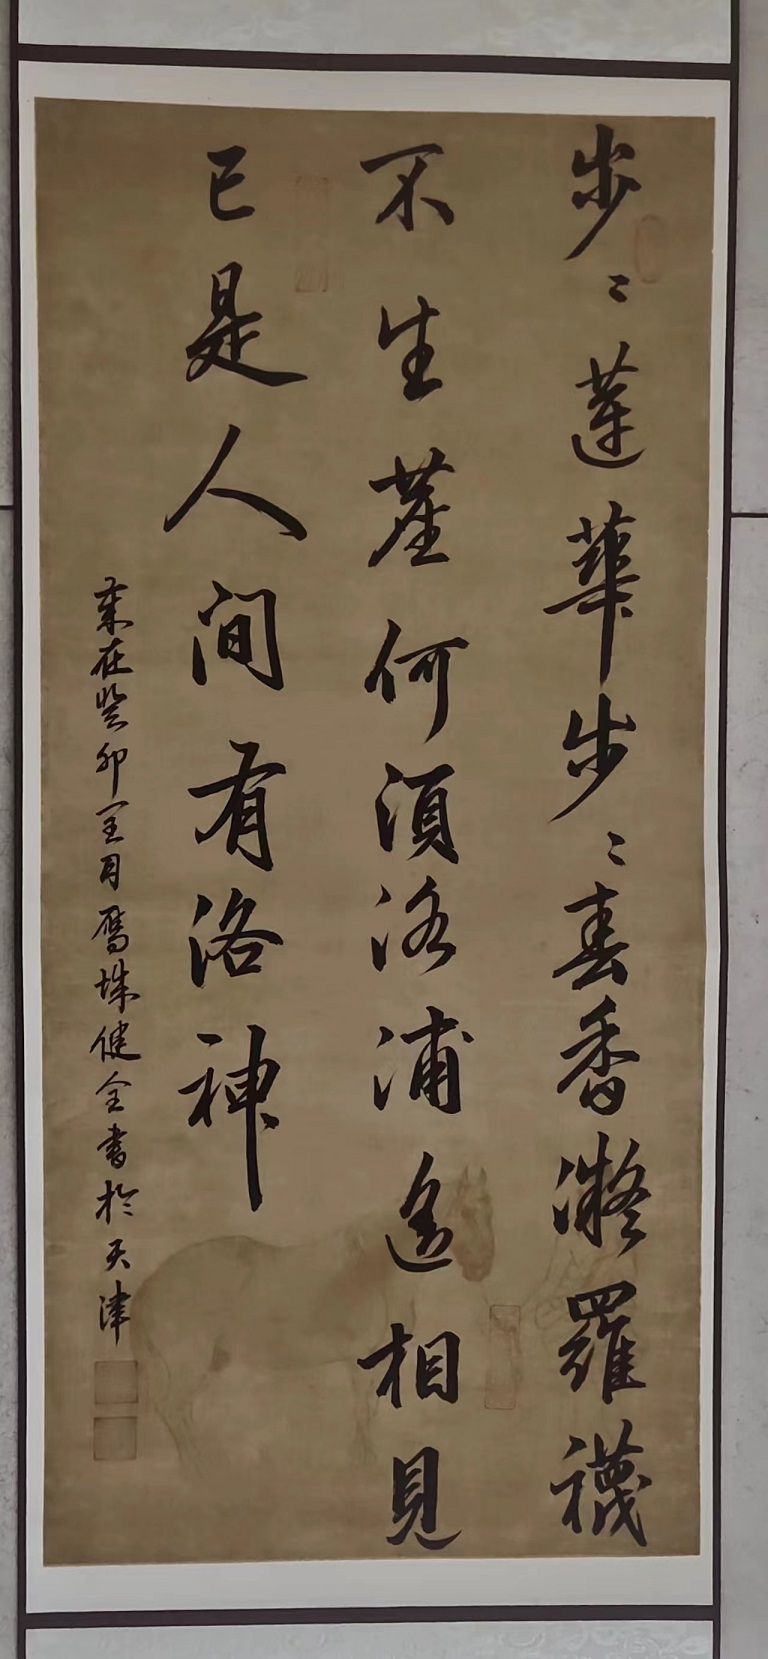 步〻蓮華步〻春香凝羅襪
不生塵何須洛浦遥相見
已是人間有洛神
歲在癸卯月健全書於天津